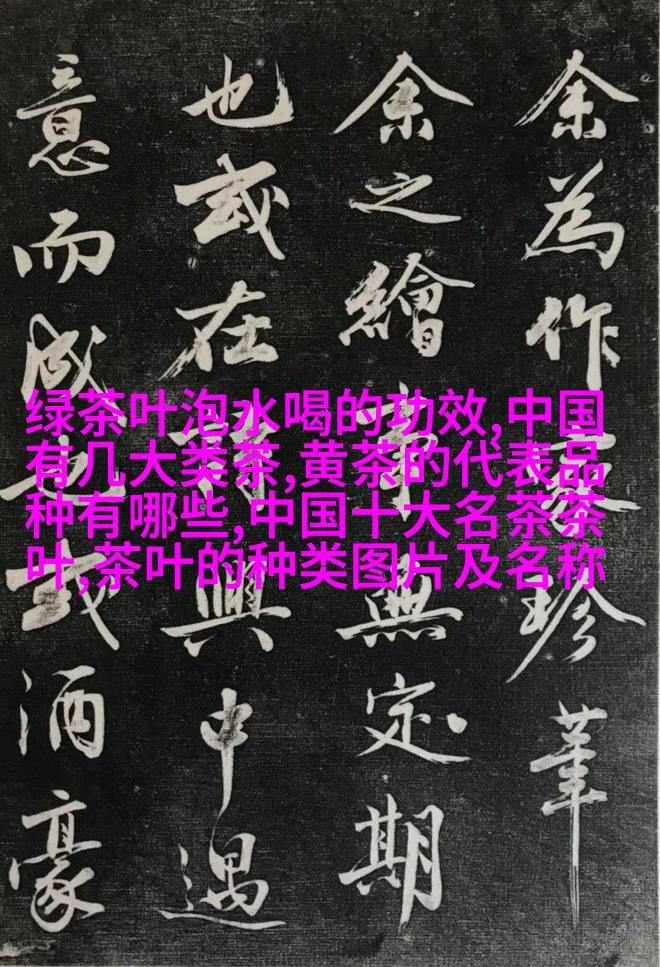 余為作珍
余之繪事無定期
也或在興中遇
意而成也或酒豪
绿茶叶泡水喝的功效,中国
有几大类茶,黄茶的代表品
种有哪些,中国十大名茶茶
叶,茶叶的种类图片及名称